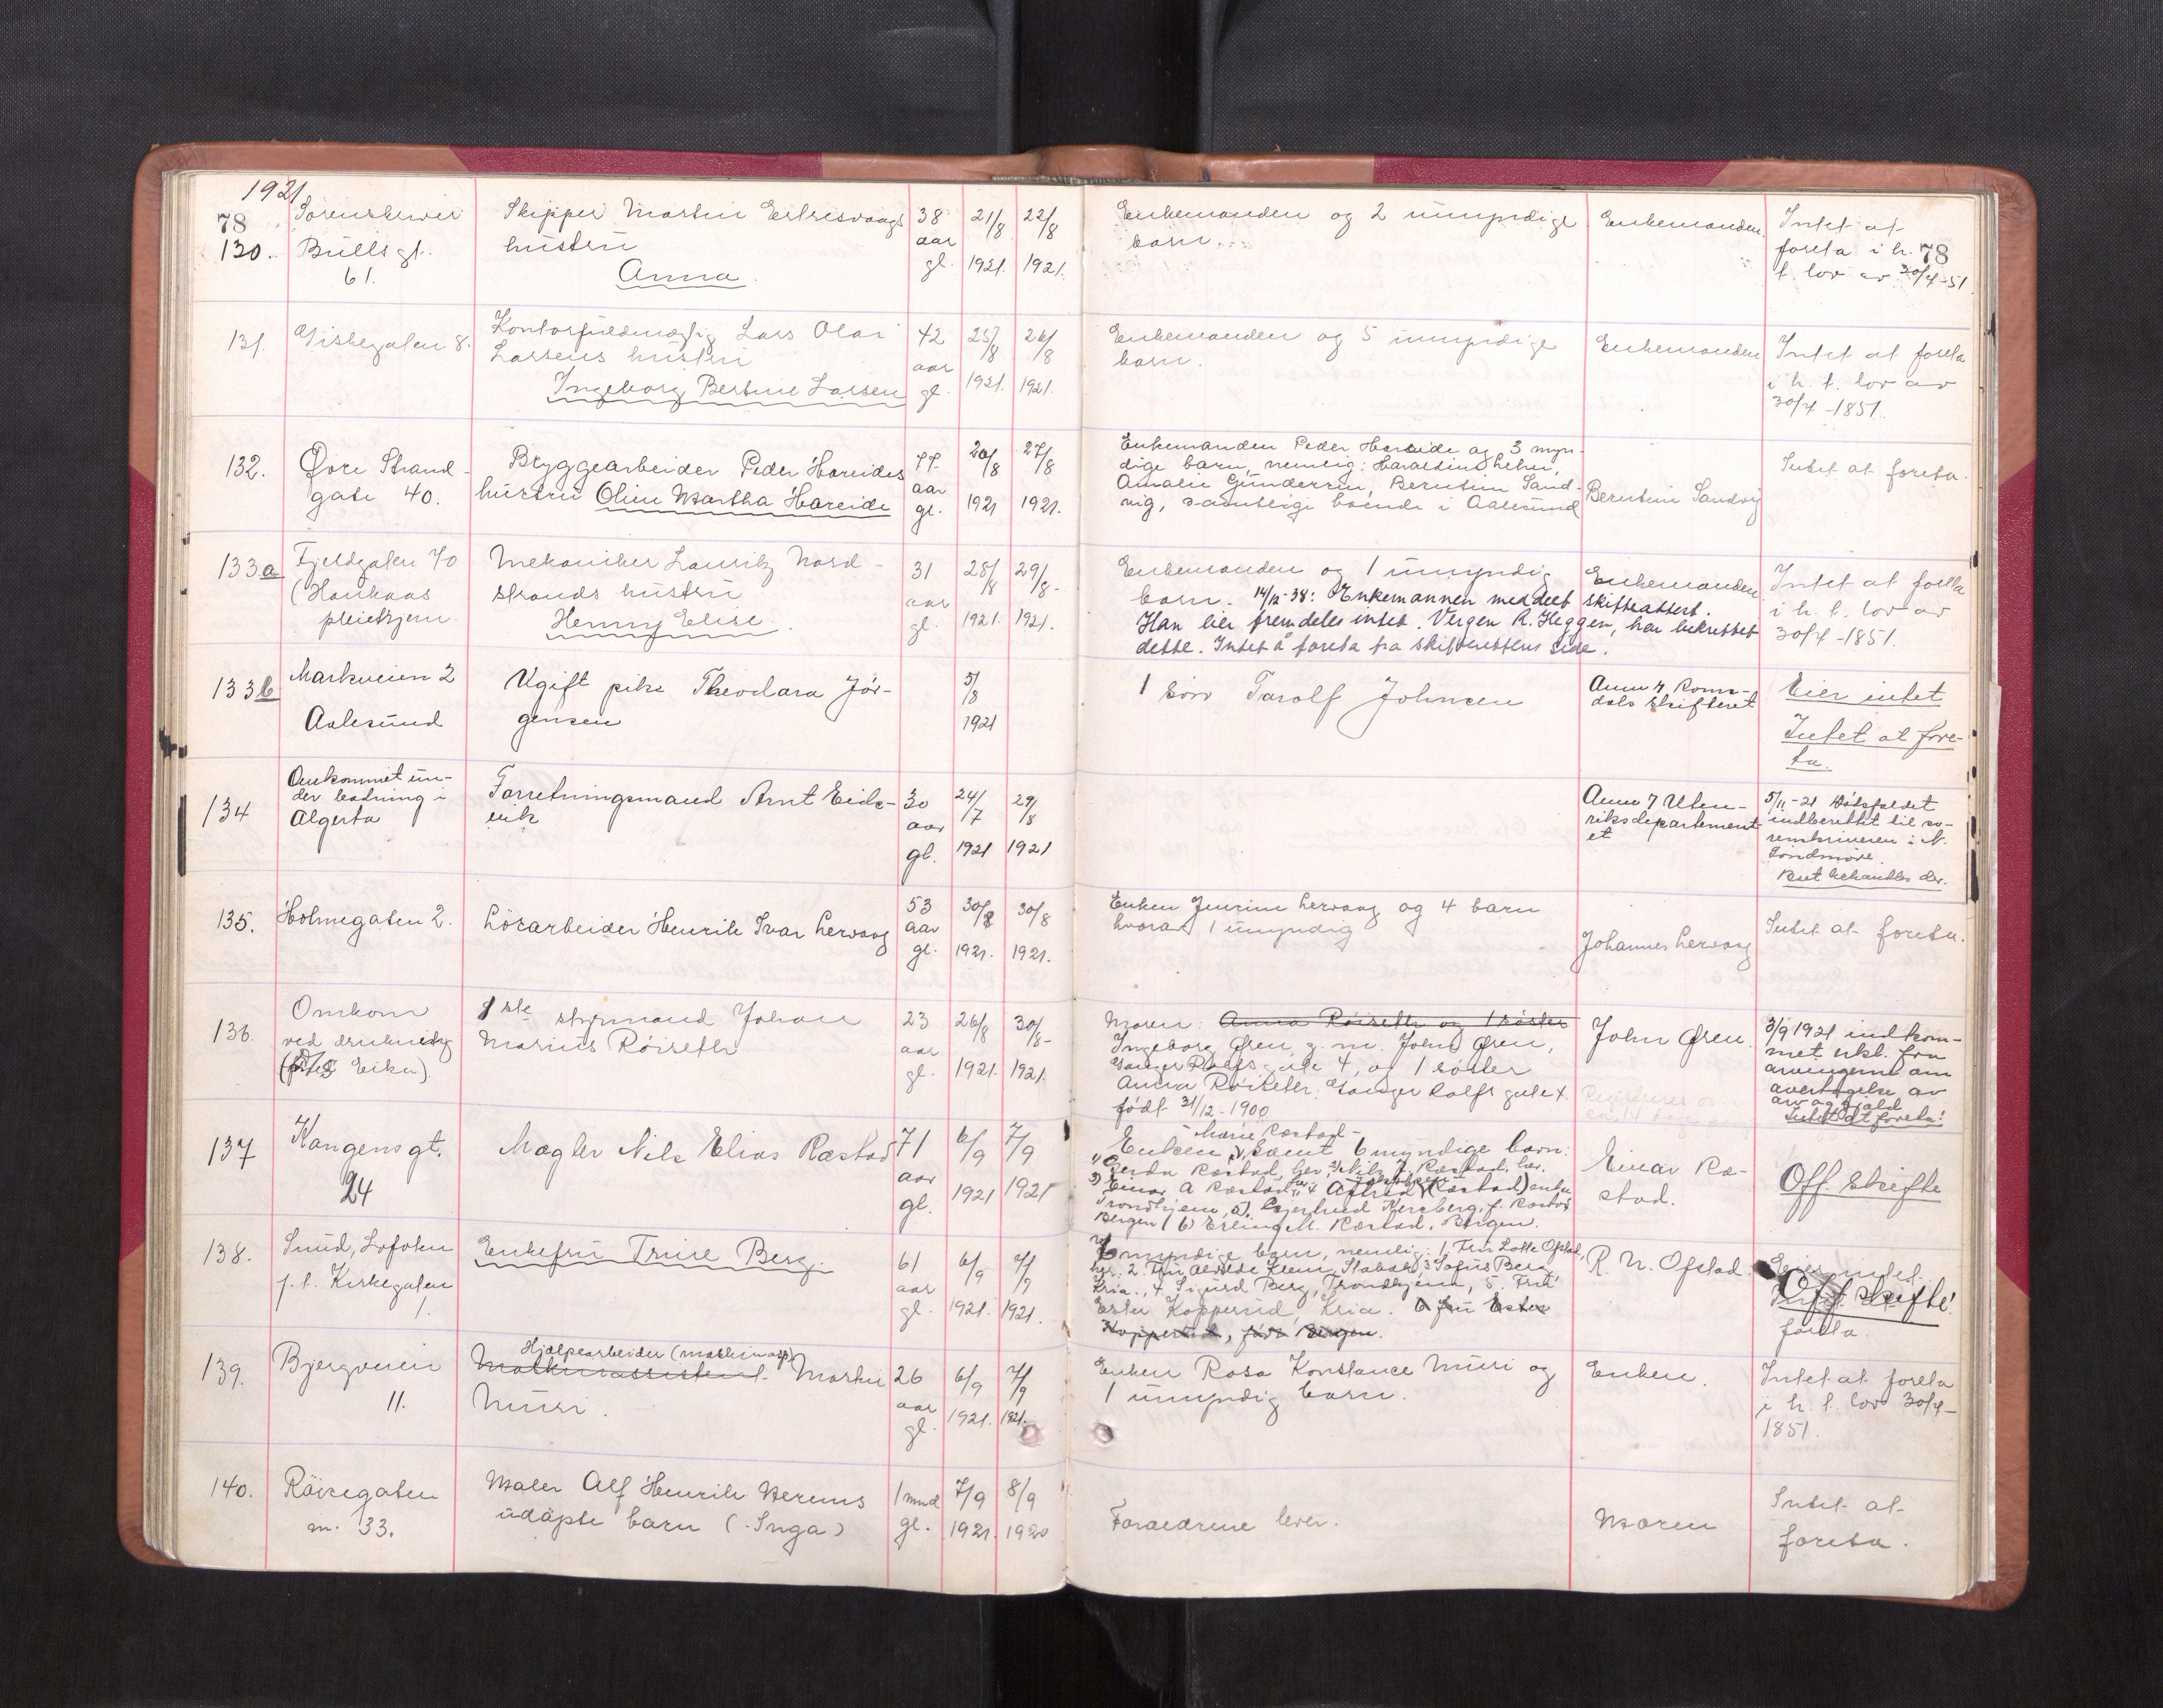 1921
78
130.
Sorenskriver
Bulls gt.
61.
Skipper Martin
hustru
Anna.
38
aar
gl.
21/8
1921.
22/8
1921.
Enkemanden og 2 umyndige
barn.
Enkemanden.
Intet at
foreta i h. 78
t. lov av 30/4-51
131.
Giskegaten 8.
Kontorfuldmægtig Lars Olai
Larsens hustru
Ingeborg Bertine Larsen
42
aar
gl.
25/8
1921.
26/8
1921.
Enkemanden og 5 umyndige
barn.
Enkemanden
Intet at foreta
i h. t. lov av
30/4-1851.
132.
Øvre Strand-
gate 40.
Bryggearbeider Peder Hareides
hustru Oline Martha Hareide
77
aar
gl.
26/8
1921
27/8
1921.
Enkemanden Peder Hareide og 3 myn-
dige barn, nemlig: Haraldine Helen,
Amalie Gundersen, Berntine Sand-
vig, samtlige boende i Aalesund
Berntine Sandvig
Intet at foreta.
133a
Fjeldgaten 70
(Haukaas
pleiehjem.
Mekaniker Lauritz Nord-
strands hustru
Henny Elise.
31
aar
gl.
28/8
1921.
29/8-
1921.
Enkemanden og 1 umyndig
barn. 14/12-38: Enkemannen meddelt skifteattest.
Han eier fremdeles intet. Vergen R. Heggen, har bekreftet
dette. Intet å foreta fra skifterettens side.
Enkemanden
Intet at foreta
i h. t. lov av
30/4-1851.
133b
Markveien 2
Aalesund
Ugift pike Theodora Jör-
gensen
5/8
1921
1 sönn Torolf Johnsen
Anm. f. Roms-
dals skifteret
Eier intet
Intet at fore-
ta.
134
Omkommet un-
der badning i
Algerta
Forretningsmand Arnt Eids-
vik
30
aar
gl.
24/7
1921
29/8
1921
Anm. f. Uten-
riksdepartement-
et
5/11-21 Dödsfaldet
indberettet til so-
renskriveren i N.
Söndmöre.
Boet behandles der.
135.
Holmegaten 2.
Lösarbeider Henrik Ivar Lervaag
53
aar
gl.
30/8
1921.
30/8
1921.
Enken Jensine Lervaag og 4 barn
hvorav 1 umyndig
Johannes Lervaag
Intet at foreta.
136.
Omkom
ved drukning
Eika).
1ste styrmand Johan
Marius Röiseth
23
aar
gl.
26/8
1921.
30/8-
1921.
Moren: Anna Röiseth og 1 söster
Ingeborg Øren, g. m. John Øren,
Ganger Rolfs gate 4, og 1 söster
Anna Röiseth, Ganger Rolfs gate 4.
født 31/12-1900
John Øren.
3/9 1921 indkom-
met erkl. fra
arvingerne om
overtagelse av
arv og gjæld
Intet at foreta!
137
Kongensgt.
24
Mægler Nils Elias Ræstad
71
aar
gl.
6/9
1921
7/9
1921
Marie Ræstad-
Enken, samt 6 myndige barn:
1) Gerda Ræstad, her, 2) Nils J. Ræstad, her.
3) Einar A Ræstad, her 4 (Ræstad) enke
Trondhjem, 5). Gjertrud Herzberg, f. Ræstad
Bergen, 6) Erling M. Ræstad, Bergen.
Einar Ræ-
stad.
Off. skifte
138.
Sund, Lofoten
p. t. Kirkegaten
1.
Enkefru Trine Berg.
61
aar
gl.
6/9
1921.
7/9
1921.
6 myndige barn, nemlig: 1. Fru Lotte Ofstad,
her. 2. Fru Klem, Stabæk, 3 Sofus Berg,
Kria., 4. Sigurd Berg, Trondhjem, 5. Fru
Ester Kopperud, Kria. 6 fru Ester
Kopperud, Bergen.
R. N. Ofstad.
Eier intet.
Off. skifte!
foreta.
139.
Bjergveien
11.
Hjælpearbeider (maskinasp)
Maskinassistent. Martin
Muri.
26
aar
gl.
6/9
1921.
7/9
1921.
Enken Rosa Konstance Muri og
1 umyndig barn.
Enken.
Intet at foreta
i h. t. lov 30/4-
1851.
140.
Röisegaten
m. 33.
Maler Alf Henrik
udøpte barn (Inga)
1 mnd
gl.
7/9
1921.
8/9
1920
Forældrene lever.
Moren
Intet at
foreta.